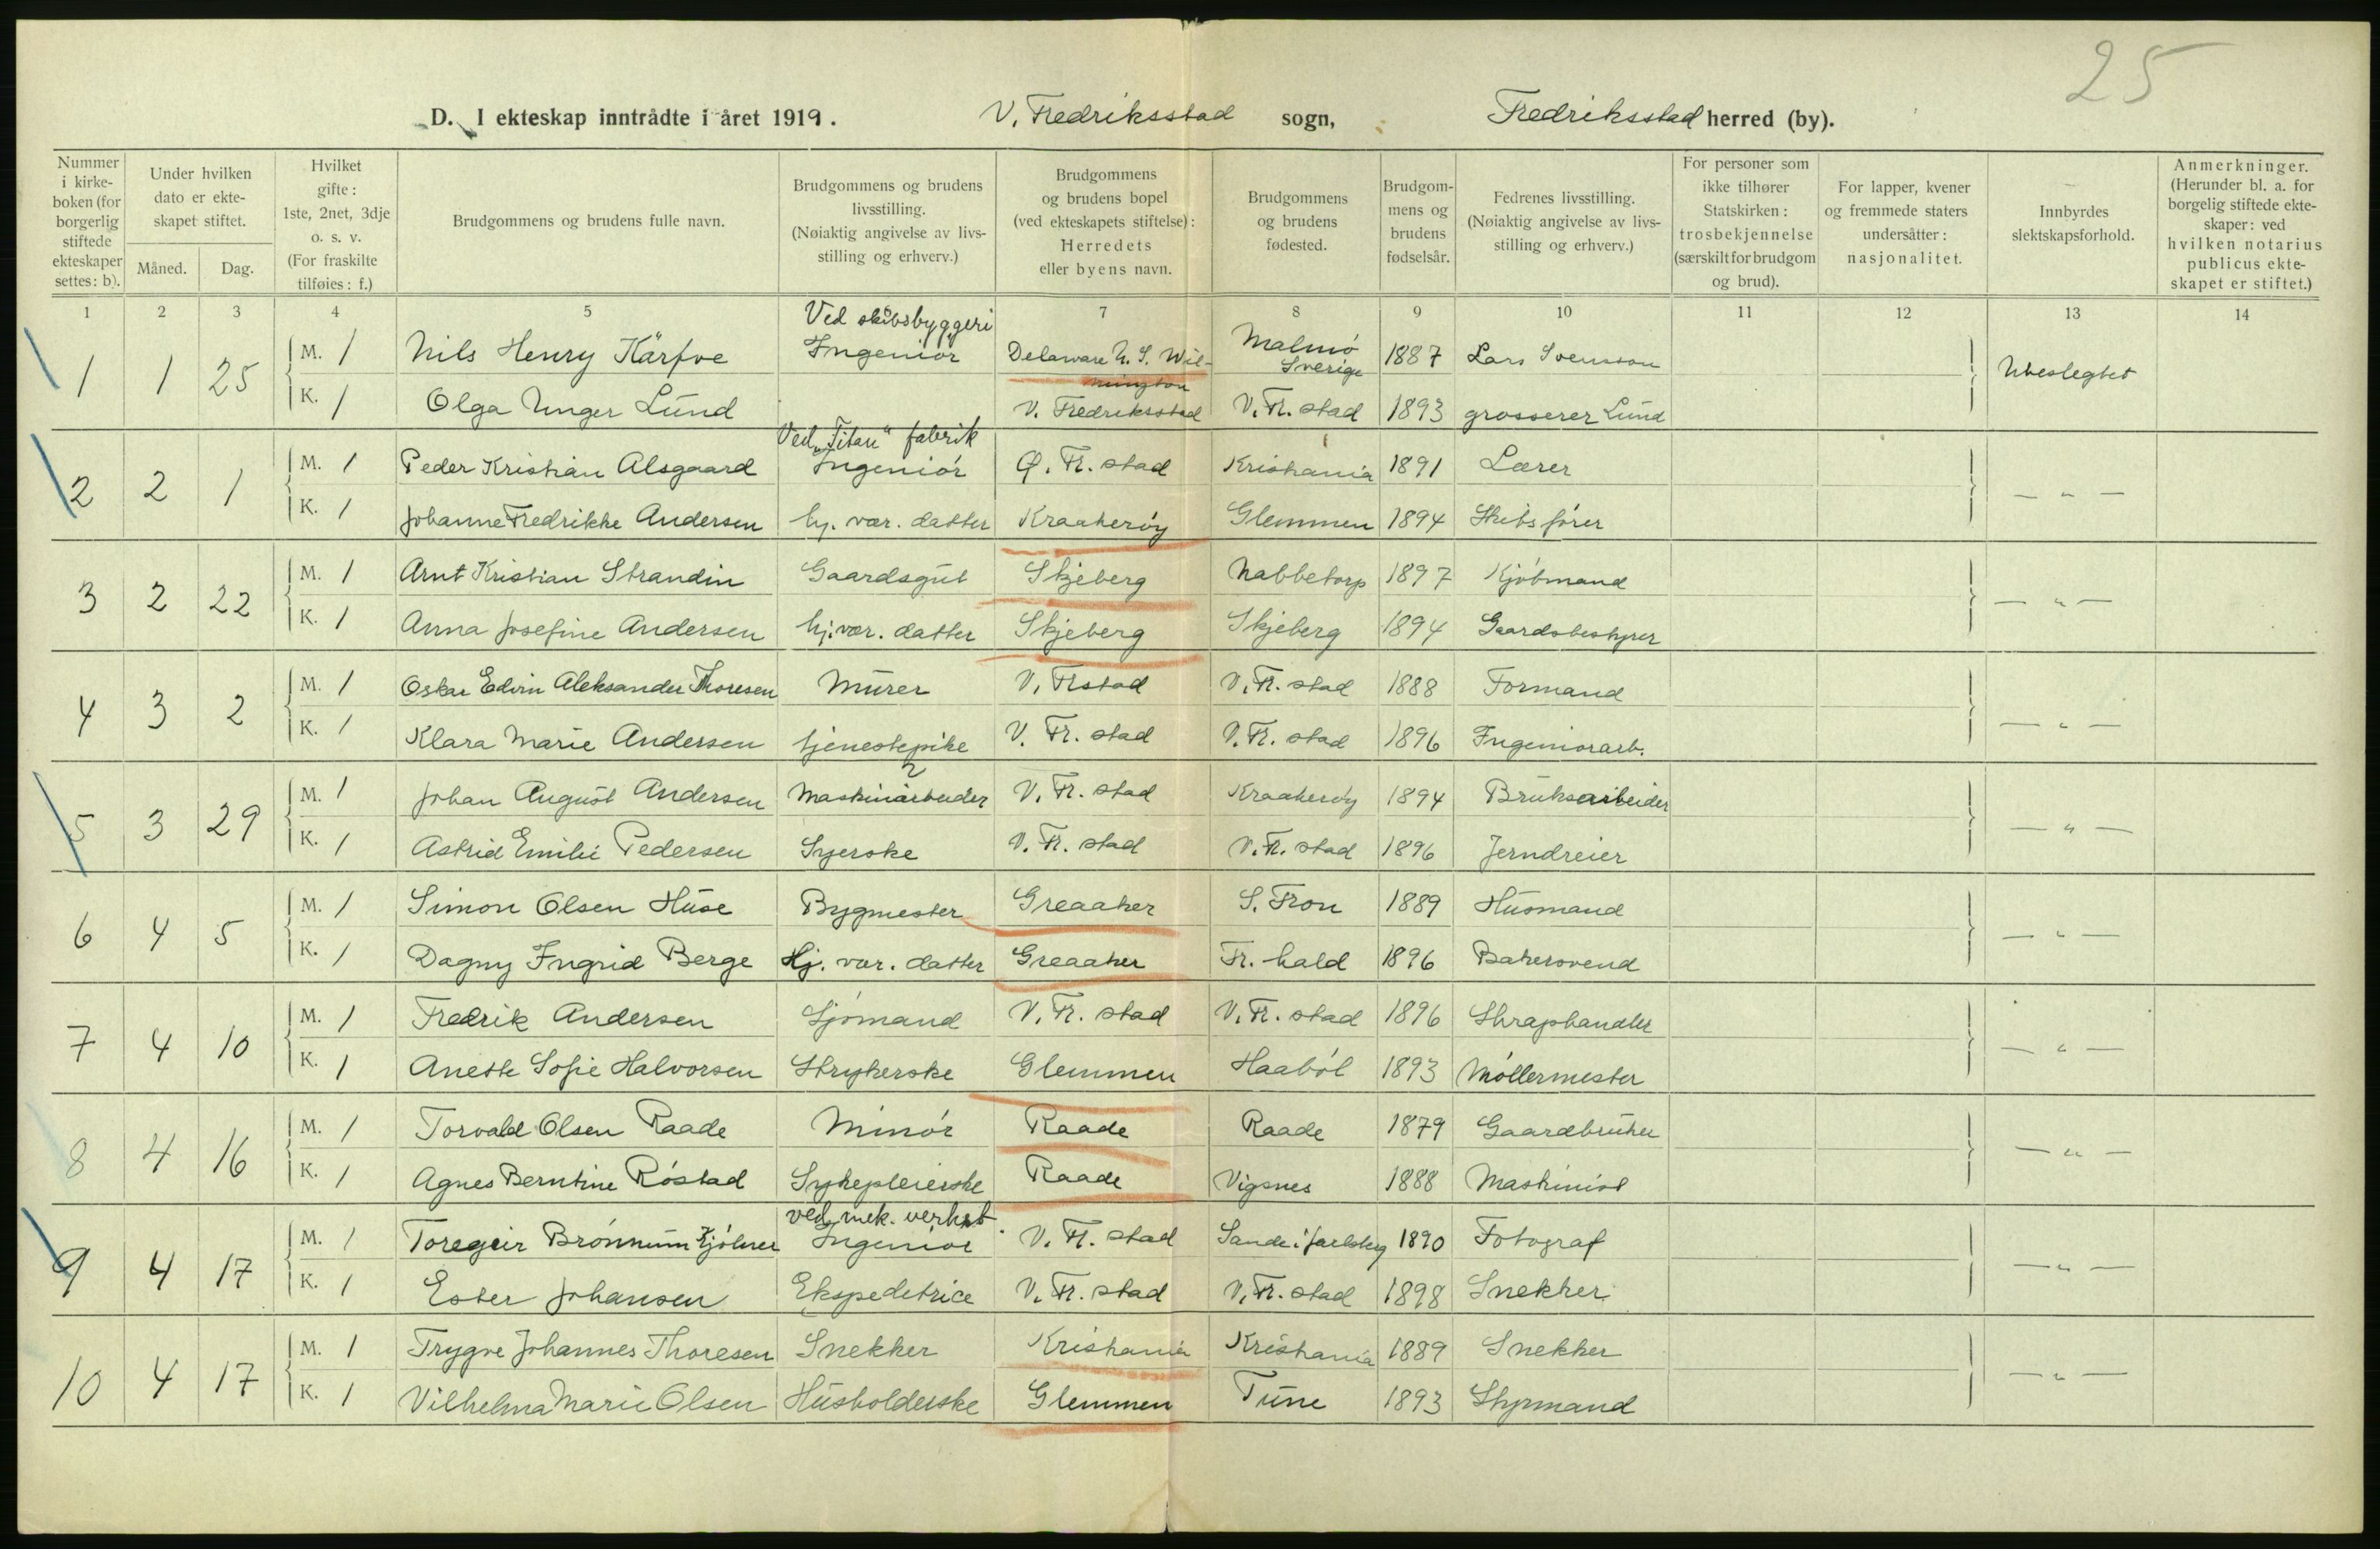 25
D. I ekteskap inntrådte i året 1919. V. Fredriksstad sogn, Fredriksstad herred (by).
Nummer i kirkeboken (for borgerlig stiftede ekteskaper settes: b).
Under hvilken dato er ekteskapet stiftet.
Måned. Dag.
Hvilket gifte: 1ste, 2net, 3dje o. s. v. (For fraskilte tilføies: f.)
Brudgommens og brudens fulle navn.
Brudgommens og brudens livsstilling. (Nøiaktig angivelse av livsstilling og erhverv.)
Brudgommens og brudens bopel (ved ekteskapets stiftelse): Herredets eller byens navn.
Brudgommens og brudens fødested.
Brudgommens og brudens fødselsår.
Fedrenes livsstilling. (Nøiaktig angivelse av livsstilling og erhverv.)
For personer som ikke tilhører Statskirken: trosbekjennelse (særskilt for brudgom og brud).
For lapper, kvener og fremmede staters undersåtter: nasjonalitet.
Innbyrdes slektskapsforhold.
Anmerkninger. (Herunder bl. a. for borgelig stiftede ekteskaper: ved hvilken notarius publicus ekteskapet er stiftet.)
1 2 3 4 5 6 7 8 9 10 11 12 13 14
1 1 25 M. 1 Nils Henry Kärfve Ved skibsbyggeri Ingeniør Delaware U. S. Wilmington Malmø Sverige 1887 Lars Svensson Ubeslegtet
K. 1 Olga Unger Lund V. Fredriksstad V. Fr. stad 1893 grosserer Lund
2 2 1 M. 1 Peder Kristian Alsgaard Ved „Titan" fabrik Ingeniør Ø. Fr. stad Kristiania 1891 Lærer — " —
K. 1 Johanne Fredrikke Andersen hj. vær. datter Kraakerøy Glemmen 1894 Skibsfører
3 2 22 M. 1 Arnt Kristian Strandin Gaardsgut Skjeberg Nabbetorp 1897 Kjøbmand — " —
K. 1 Anna Josefine Andersen hj. vær. datter Skjeberg Skjeberg 1894 Gaardsbestyrer
4 3 2 M. 1 Oskar Edvin Aleksander Thoresen Murer V. Frstad V. Fr. stad 1888 Formand — " —
K. 1 Klara Marie Andersen tjenestepike V. Fr. stad V. Fr. stad 1896 Ingeniørarb.
5 3 29 M. 1 Johan August Andersen Maskinarbeider V. Fr. stad Kraakerøy 1894 Bruksarbeider — " —
K. 1 Astrid Emilie Pedersen Syerske V. Fr. stad V. Fr. stad 1896 Jerndreier
6 4 5 M. 1 Simon Olsen Huse Bygmester Greaaker S. Fron 1889 Husmand — " —
K. 1 Dagny Ingrid Berge Hj. vær. datter Greaaker Fr. hald 1896 Bakersvend
7 4 10 M. 1 Fredrik Andersen Sjømand V. Fr. stad V. Fr. stad 1896 Skraphandler — " —
K. 1 Anette Sofie Halvorsen Strykerske Glemmen Haabøl 1893 Møllermester
8 4 16 M. 1 Torvald Olsen Raade Minør Raade Raade 1879 Gaardbruker — " —
K. 1 Agnes Berntine Røstad Sykepleierske Raade Vigsnes 1888 Maskinist
9 4 17 M. 1 Toregeir Brønnum Kjølner ved mek. verkst. Ingeniør V. Fr. stad Sande i Jarlsberg 1890 Fotograf — " —
K. 1 Ester Johansen Ekspeditrice V. Fr. stad V. Fr. stad 1898 Snekker
10 4 17 M. 1 Trygve Johannes Thoresen Snekker Kristiania Kristiania 1889 Snekker — " —
K. 1 Vilhelma Marie Olsen Husholderske Glemmen Tune 1893 Styrmand